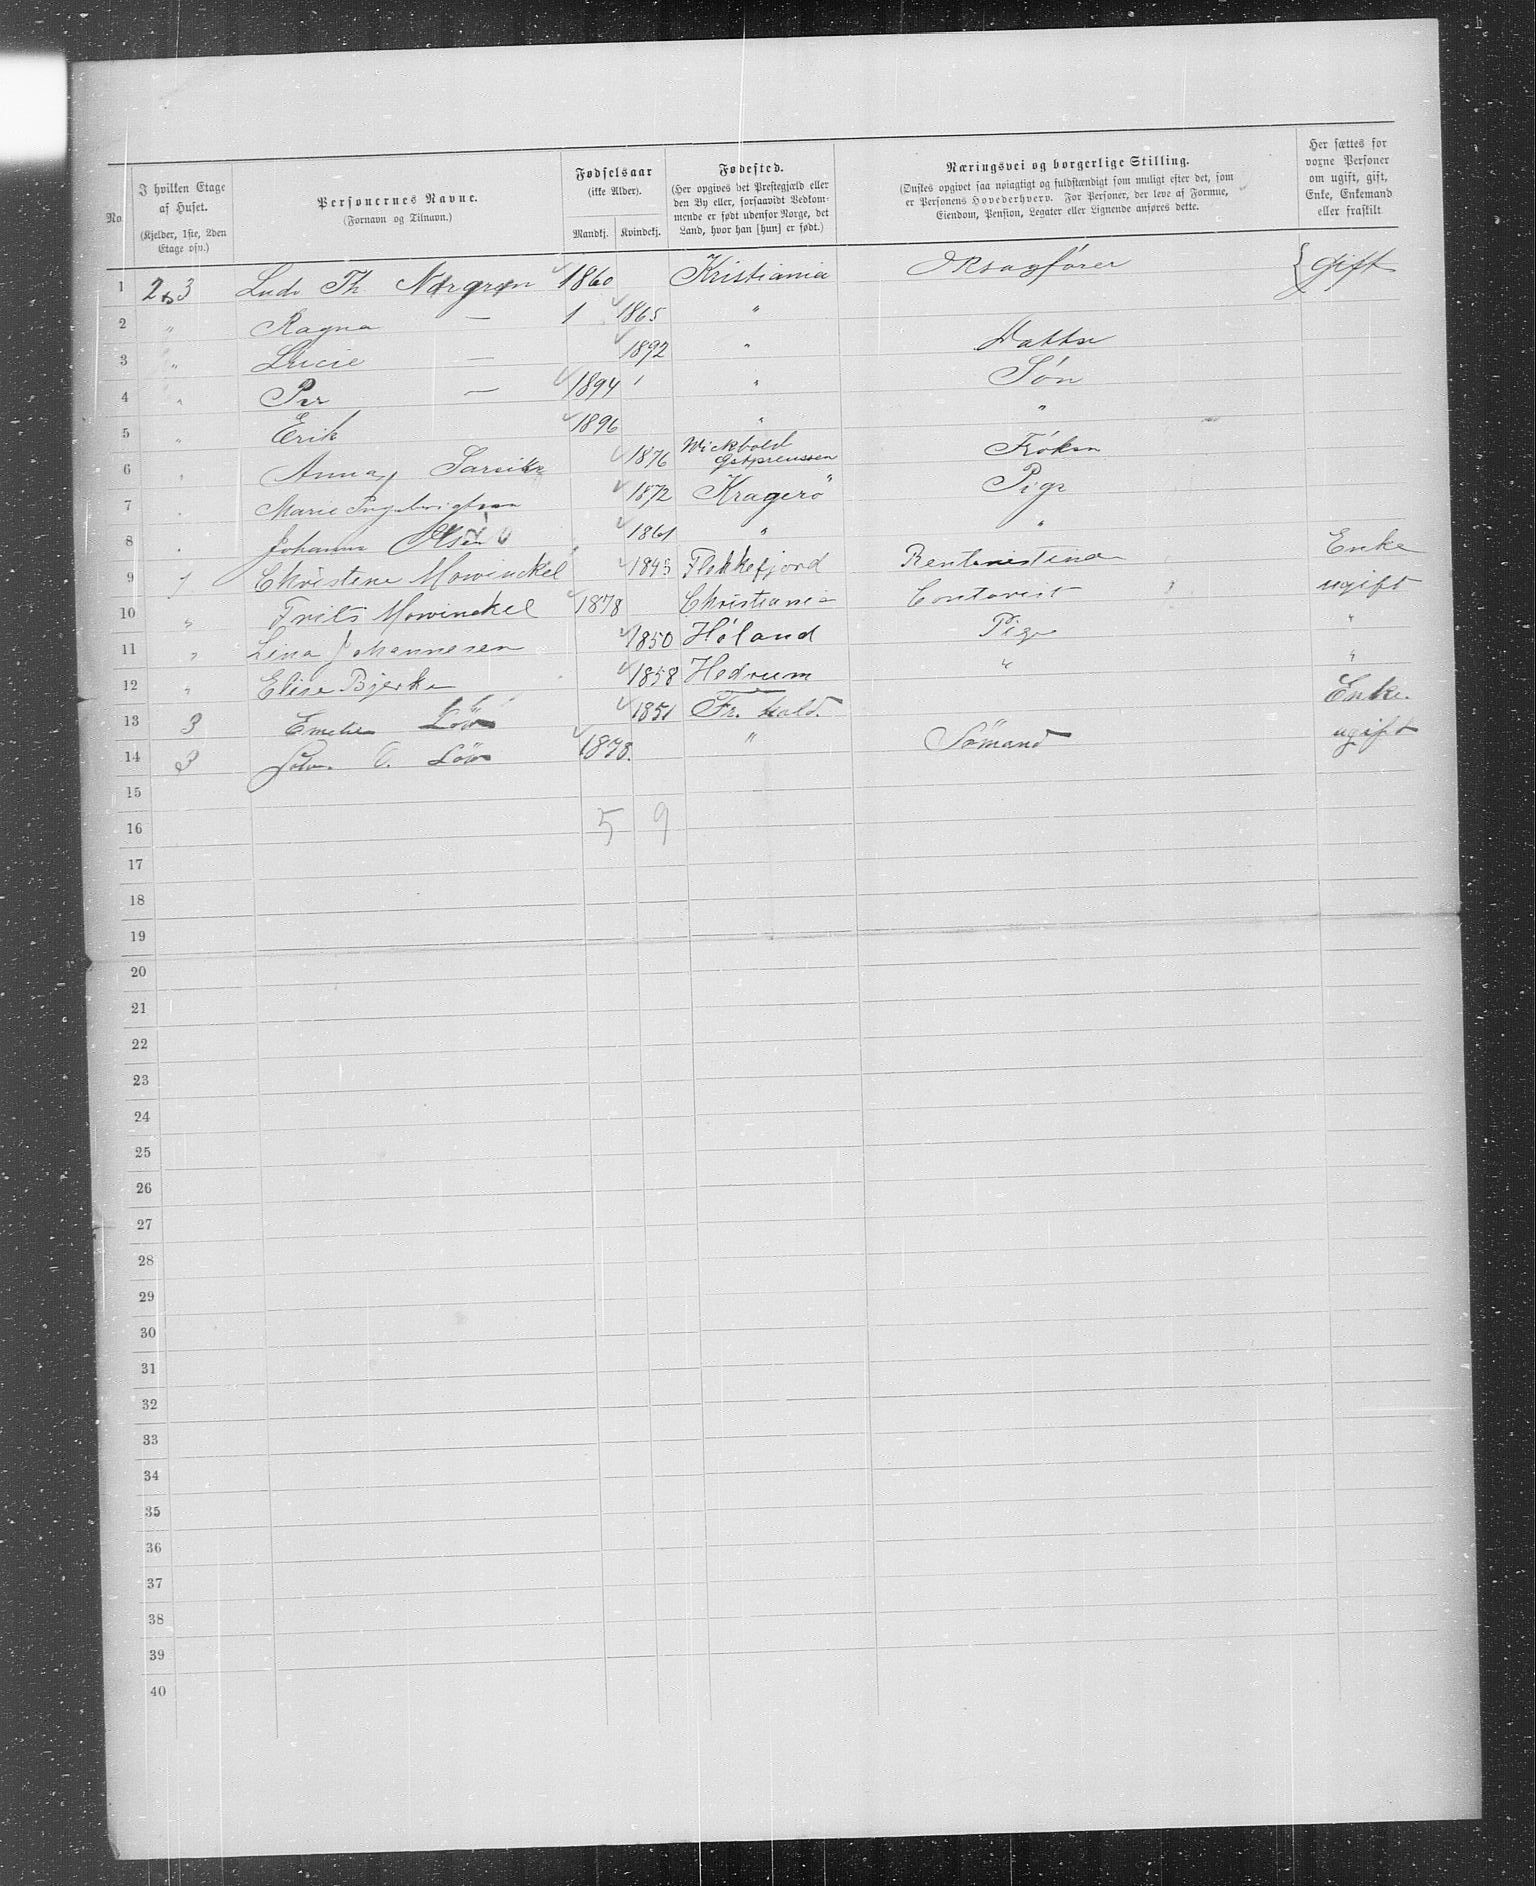 No.
I hvilken Etage af Huset.
(Kjelder, 1ste, 2den Etage osv.)
Personernes Navne.
(Fornavn og Tilnavn.)
Fødselsaar
(ikke Alder).
Mandkj. Kvindekj.
Fødested.
(Her opgives det Præstegjæld eller
den By eller, forsaavidt Vedkom-
mende er født udenfor Norge, det
Land, hvor han [hun] er født.)
Næringsvei og borgerlige Stilling.
(Ønskes opgivet saa nøiagtigt og fuldstændigt som muligt efter det, som
er Personens Hovederhverv. For Personer, der leve af Formue,
Eiendom, Pension, Legater eller Lignende anføres dette.
Her sættes for
voxne Personer
om ugift, gift,
Enke, Enkemand
eller fraskilt
1 2 3 Ludv Th. Nørgren 1860 Kristiania ORsagfører { gift
2 " Ragna — 1 1865 "
3 " Lucie — 1892 " Datter
4 " Per — 1894 " Søn
5 " Erik 1896 " "
6 " Anna 1876 Wickbold Ostpreussen Frøken
7 " Marie Ingebrigtsen 1872 Kragerø " Pige
8 " Johanne Olsen 1861 " "
9 1 Christine Mowinckel 1845 Flekkefjord Rentenistinde Enke
10 " Frits Mowinckel 1878 Christiania Contorist ugift
11 " Lina Johannesen 1850 Høland Pige "
12 " Elise Bjerke 1858 Hedrum " "
13 3 Emelie Löv 1851 Fr. hald. Enke.
14 3 O. Löv 1878. " Sømand ugift
15
16 5 9
17
18
19
20
21
22
23
24
25
26
27
28
29
30
31
32
33
34
35
36
37
38
39
40